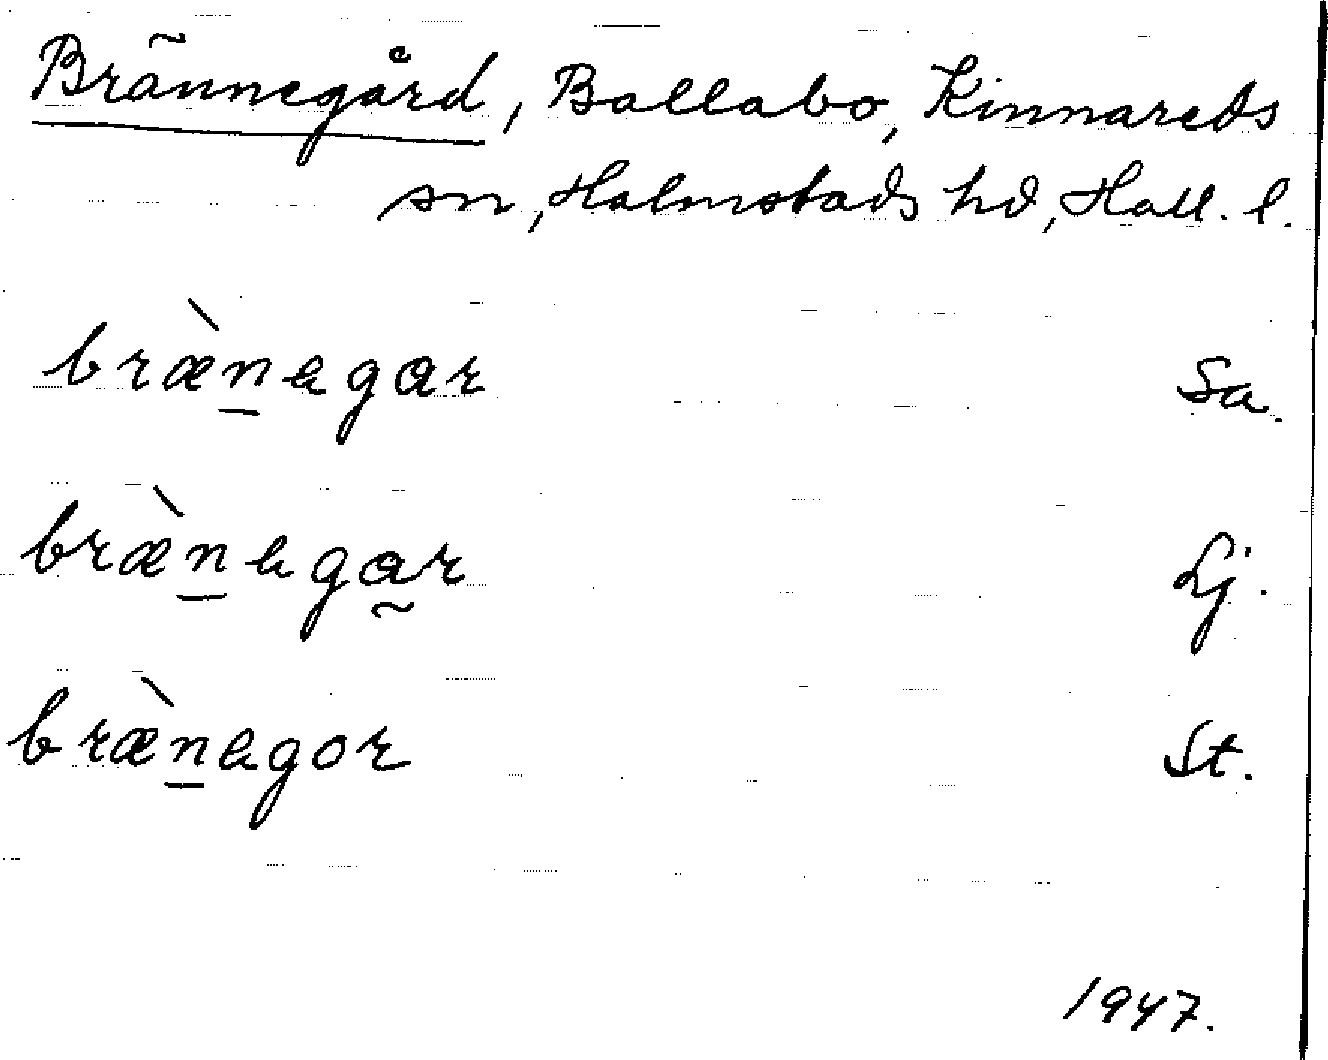 Brännegård, Ballabo, Kinnareds
sn, Halmstads hd, Hall. l.
bræ̀n̲egar Sa.
bræ̀n̲ega̰r Lj.
bræ̀n̲egor St.
1947.